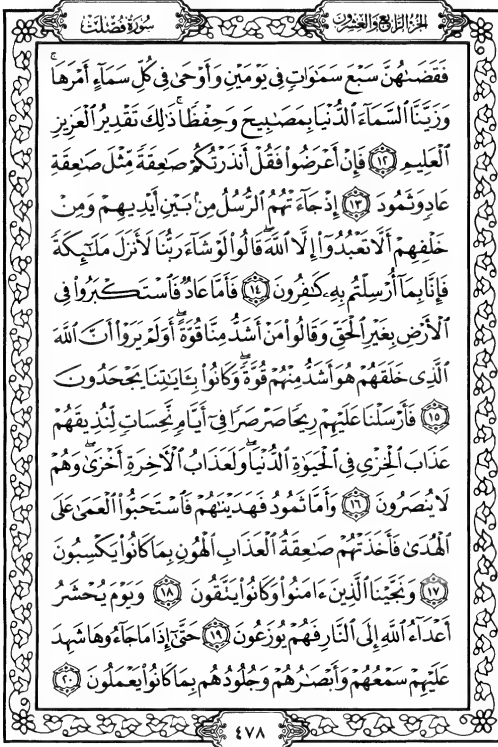 سُورَةُ فُصِّلَتْ
الجُزءُ الرَّابِعُ وَالعِشْرُونَ
فَقَضَىٰهُنَّ سَبْعَ سَمَٰوَاتٍ فِي يَوْمَيْنِ وَأَوْحَىٰ فِي كُلِّ سَمَآءٍ أَمْرَهَا ۚ
وَزَيَّنَّا ٱلسَّمَآءَ ٱلدُّنْيَا بِمَصَٰبِيحَ وَحِفْظًا ۚ ذَٰلِكَ تَقْدِيرُ ٱلْعَزِيزِ
ٱلْعَلِيمِ ١٢ فَإِنْ أَعْرَضُوا۟ فَقُلْ أَنذَرْتُكُمْ صَٰعِقَةً مِّثْلَ صَٰعِقَةِ
عَادٍ وَثَمُودَ ١٣ إِذْ جَآءَتْهُمُ ٱلرُّسُلُ مِنۢ بَيْنِ أَيْدِيهِمْ وَمِنْ
خَلْفِهِمْ أَلَّا تَعْبُدُوٓا۟ إِلَّا ٱللَّهَ ۖ قَالُوا۟ لَوْ شَآءَ رَبُّنَا لَأَنزَلَ مَلَٰٓئِكَةً
فَإِنَّا بِمَآ أُرْسِلْتُم بِهِۦ كَٰفِرُونَ ١٤ فَأَمَّا عَادٌ فَٱسْتَكْبَرُوا۟ فِي
ٱلْأَرْضِ بِغَيْرِ ٱلْحَقِّ وَقَالُوا۟ مَنْ أَشَدُّ مِنَّا قُوَّةً ۖ أَوَلَمْ يَرَوْا۟ أَنَّ ٱللَّهَ
ٱلَّذِي خَلَقَهُمْ هُوَ أَشَدُّ مِنْهُمْ قُوَّةً ۖ وَكَانُوا۟ بِـَٔايَٰتِنَا يَجْحَدُونَ
١٥ فَأَرْسَلْنَا عَلَيْهِمْ رِيحًا صَرْصَرًا فِيٓ أَيَّامٍ نَّحِسَاتٍ لِّنُذِيقَهُمْ
عَذَابَ ٱلْخِزْيِ فِي ٱلْحَيَوٰةِ ٱلدُّنْيَا ۖ وَلَعَذَابُ ٱلْـَٔاخِرَةِ أَخْزَىٰ ۖ وَهُمْ
لَا يُنصَرُونَ ١٦ وَأَمَّا ثَمُودُ فَهَدَيْنَٰهُمْ فَٱسْتَحَبُّوا۟ ٱلْعَمَىٰ عَلَى
ٱلْهُدَىٰ فَأَخَذَتْهُمْ صَٰعِقَةُ ٱلْعَذَابِ ٱلْهُونِ بِمَا كَانُوا۟ يَكْسِبُونَ
١٧ وَنَجَّيْنَا ٱلَّذِينَ ءَامَنُوا۟ وَكَانُوا۟ يَتَّقُونَ ١٨ وَيَوْمَ يُحْشَرُ
أَعْدَآءُ ٱللَّهِ إِلَى ٱلنَّارِ فَهُمْ يُوزَعُونَ ١٩ حَتَّىٰٓ إِذَا مَا جَآءُوهَا شَهِدَ
عَلَيْهِمْ سَمْعُهُمْ وَأَبْصَٰرُهُمْ وَجُلُودُهُم بِمَا كَانُوا۟ يَعْمَلُونَ ٢٠
٤٧٨